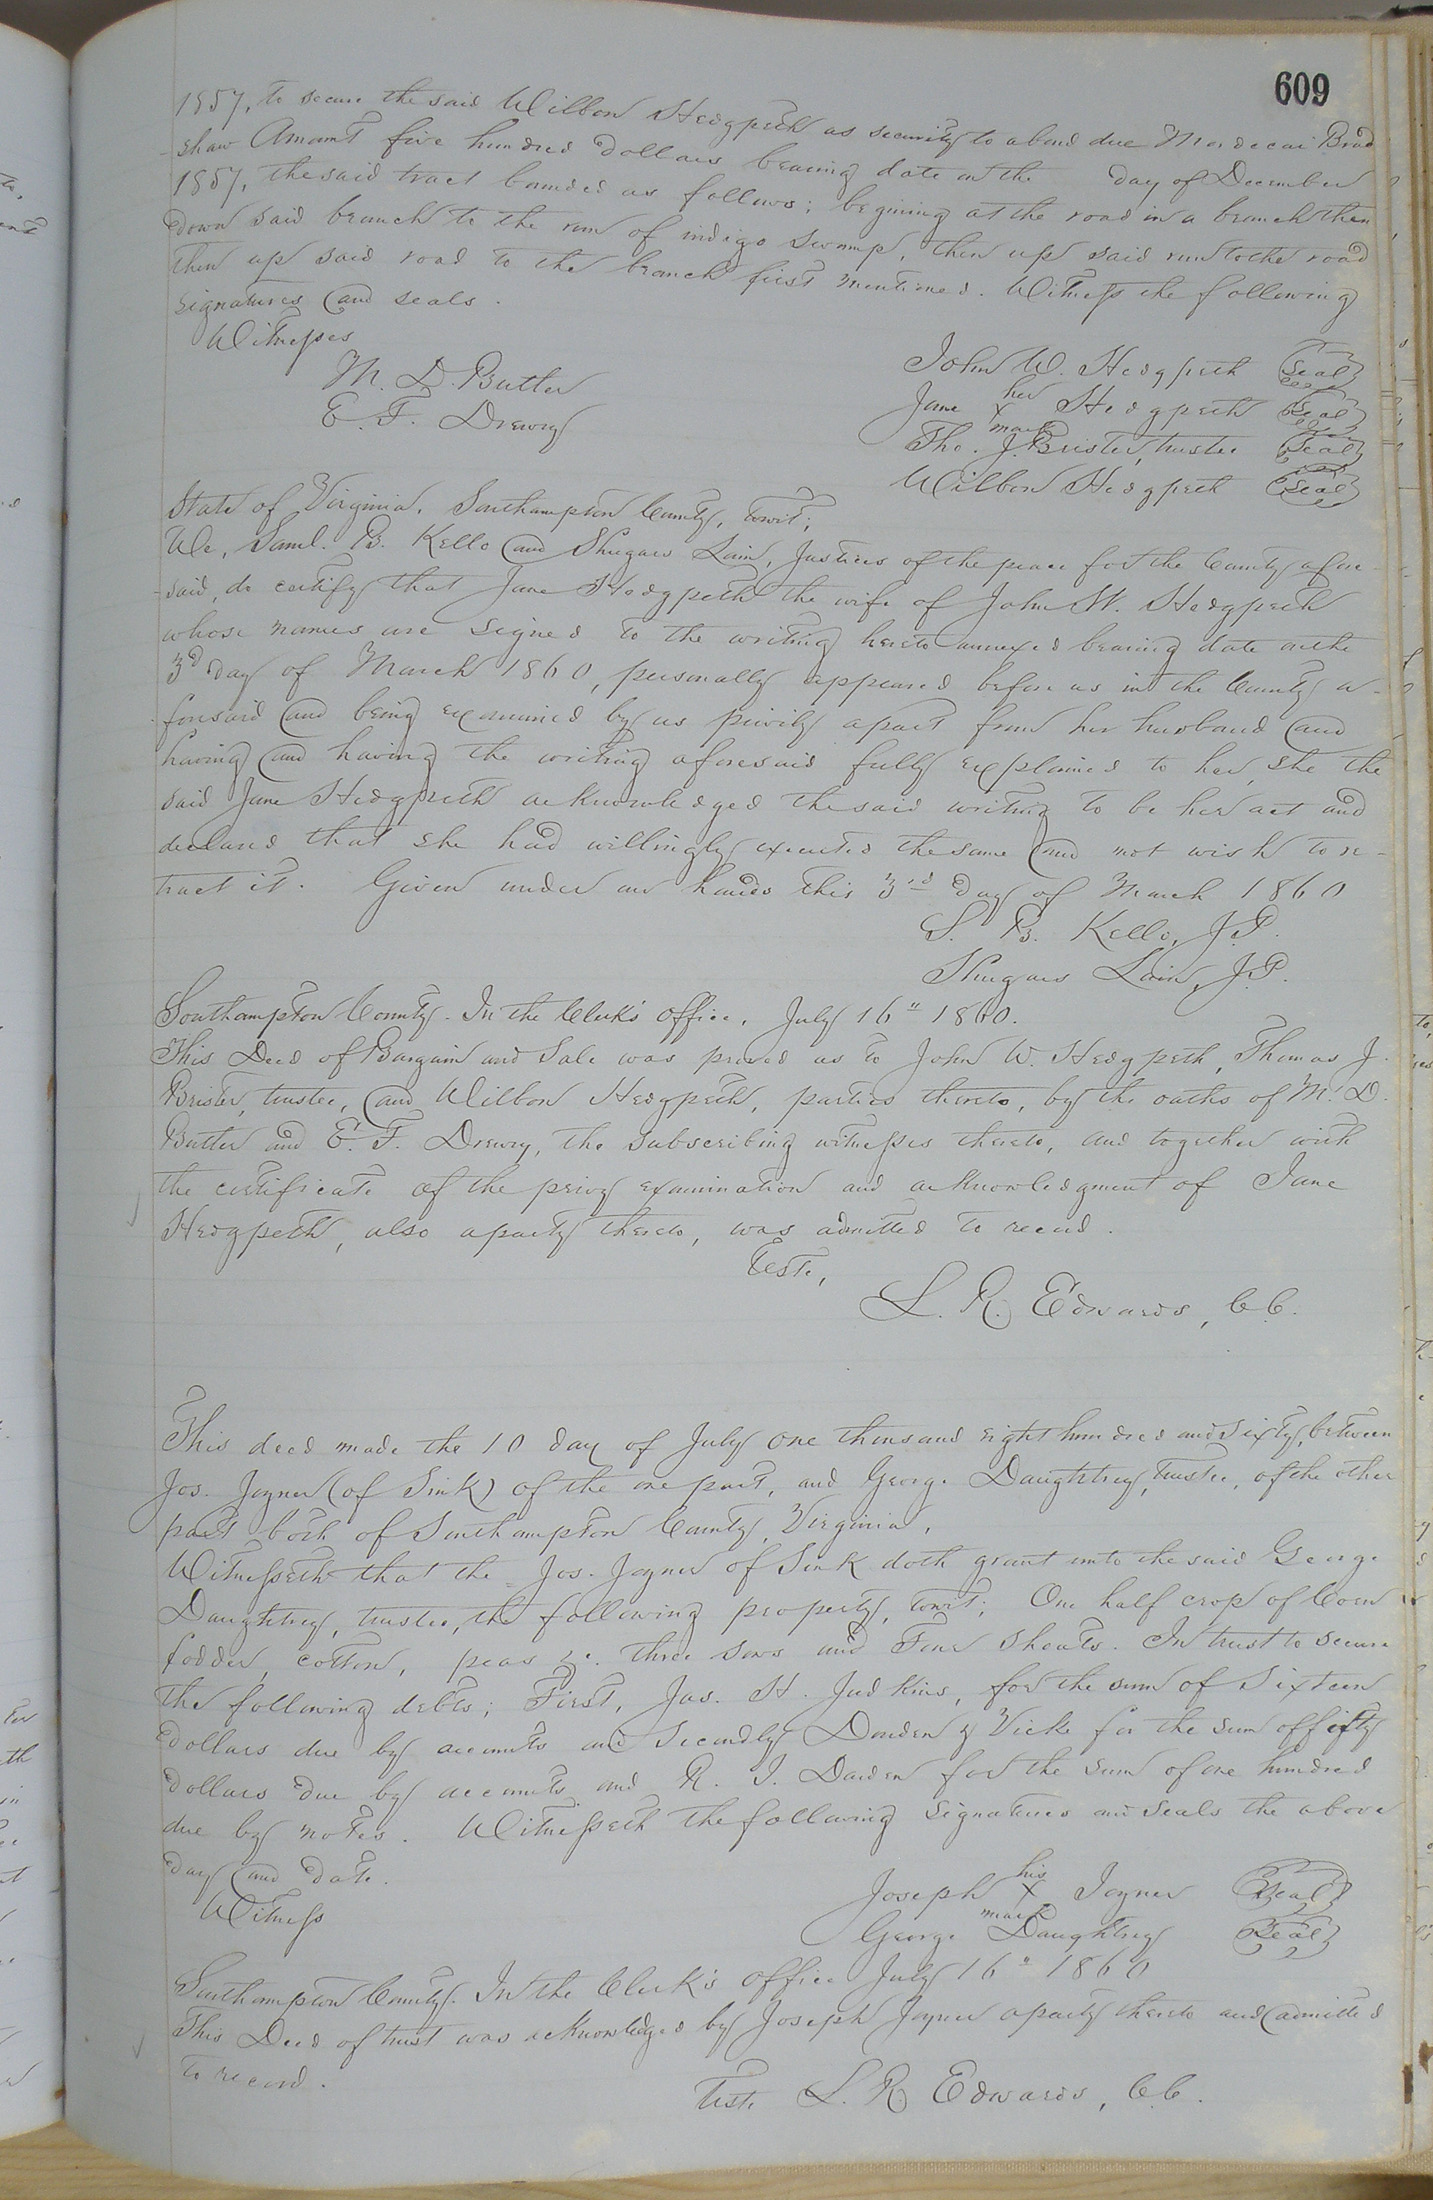 609
1857, to secure the said Wilbon Hedgpeth as security to a bond due Mordecai Brad
shaw Amount five hundred Dollars bearing date on the day of December
1857, the said tract bounded as follows; begining at the road in a branch then
down said branch to the run of indigo swamp, then up said run to the road
then up said road to the branch first mentioned. Witness the following
signatures and seals.
Witnesses
M. D. Butler
E. F. Drewry
John W. Hedgpeth Seal
Jane her x mark Hedgpeth Seal
Tho. J. Brister, trustee Seal
Wilbon Hedgpeth Seal
State of Virginia, Southampton County, towit;
We, Saml. B. Kello and Shugars Lain, Justices of the peace for the County afore-
said, do certify that Jane Hedgpeth the wife of John W. Hedgpeth
whose names are signed to the writing hereto annexed bearing date on the
3d day of March 1860, personally appeared before us in the County a-
foresaid and being examined by us privily apart from her husband and
having and having the writing aforesaid fully explained to her, she the
said Jane Hedgpeth acknowledged the said writing to be her act and
declared that she had willingly executed the same and not wish to re-
tract it. Given under our hands this 3rd day of March 1860
S. B. Kello, J.P.
Shugars Lain, J.P.
Southampton County. In the Clerk's office, July 16" 1860.
This Deed of Bargain and Sale was proved as to John W. Hedgpeth, Thomas J.
Brister, trustee, and Wilbon Hedgpeth, parties thereto, by the oaths of M. D.
Butler and E. F. Drewry, the subscribing witnesses thereto, and together with
the certificate of the privy examination and acknowledgment of Jane
Hedgpeth, also a party thereto, was admitted to record.
Teste,
L. R. Edwards, C.C.
This deed made the 10 day of July one thousand eight hundred and sixty, between
Jos. Joyner (of Sink) of the one part, and George Daughtrey, trustee, of the other
part both of Southampton County, Virginia,
Witnesseth that the = Jos. Joyner of Sink doth grant unto the said George
Daughtrey, trustee, the following property, towit; One half crop of Corn
fodder, cotton, peas &c. three sows and Four shoats. In trust to secure
the following debts; First, Jas. H. Judkins, for the sum of Sixteen
dollars due by accounts and Secondly Darden & Vick for the sum of fifty
dollars due by accounts and R. J. Darden for the sum of one hundred
due by notes. Witnesseth the following signatures and seals the above
day and date.
Witness
Joseph his x mark Joyner Seal
George Daughtrey Seal
Southampton County. In the Clerk's office July 16" 1860
This Deed of trust was acknowledged by Joseph Joyner a party thereto and admitted
to record.
Teste L. R. Edwards, C.C.